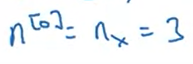 n^[0] = n_x = 3